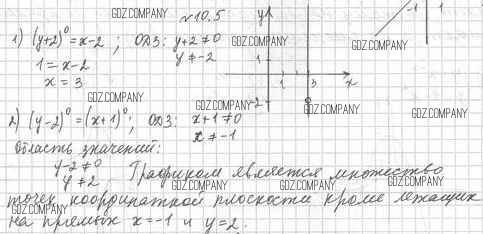 GDZ.COMPANY
№10.5
1) (y+2)⁰ = x-2 ; ОДЗ: y+2≠0
y≠-2
1 = x-2
x = 3
y
1
1
3
x
-2
-1
1
GDZ.COMPANY
GDZ.COMPANY
GDZ.COMPANY
GDZ.COMPANY
GDZ.COMPANY
2) (y-2)⁰ = (x+1)⁰; ОДЗ: x+1≠0
x≠-1
GDZ.COMPANY
Область значений:
y-2≠0
y≠2. Графиком является множество
GDZ.COMPANY GDZ.COMPANY GDZ.COMPANY
точек координатной плоскости кроме лежащих
GDZ.COMPANY
на прямых x=-1 и y=2.